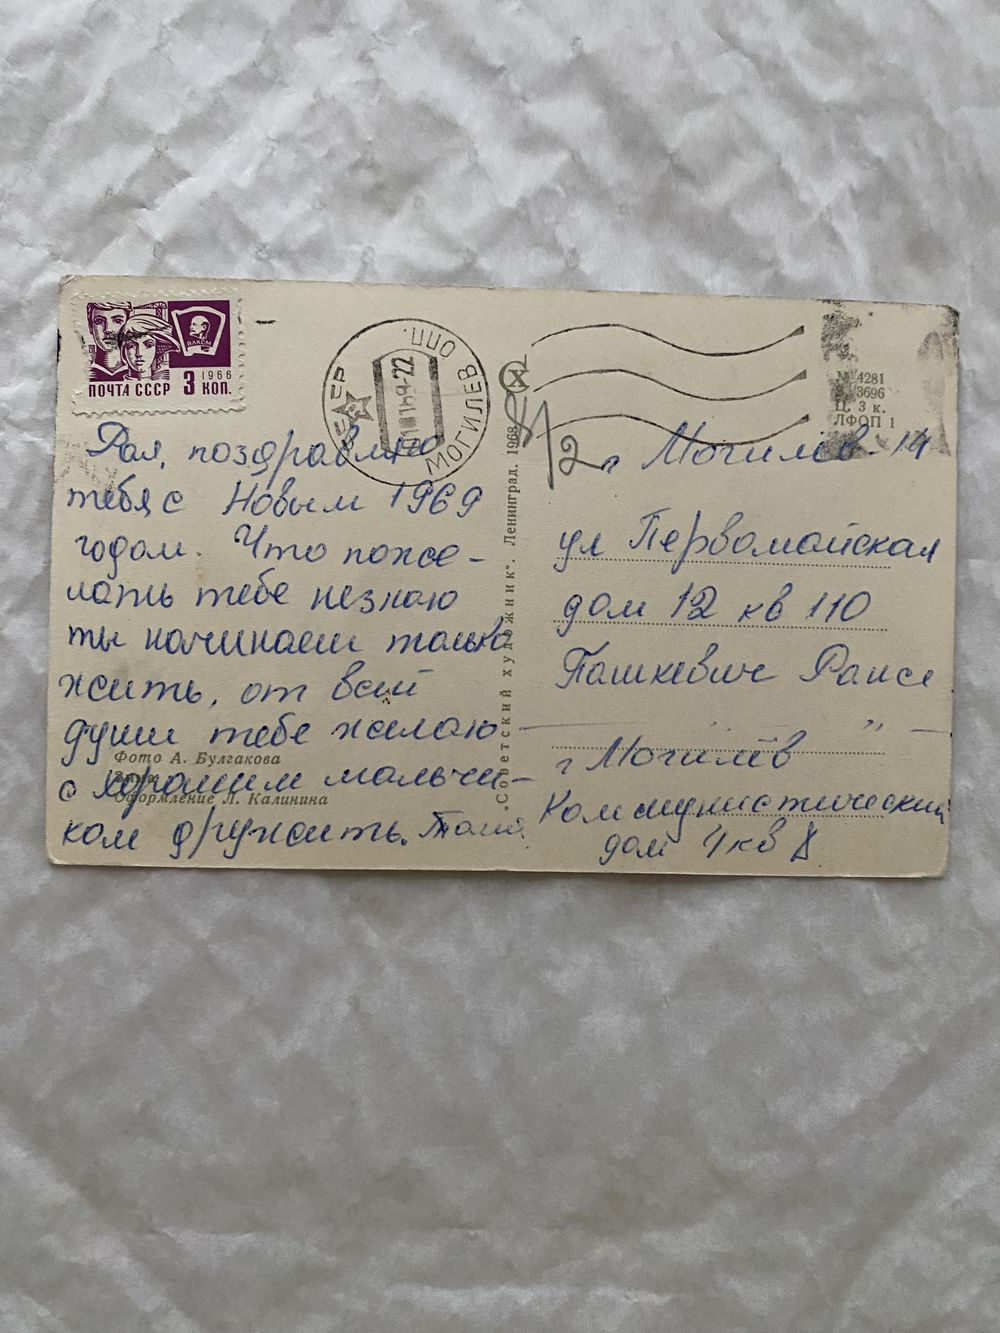 ВЛКСМ
ПОЧТА СССР 3 1966 КОП.
МОГИЛЕВ
ОПП.
22
Рая, поздравляю
тебя с Новым 1969
годом. Что поже-
лать тебе незнаю
ты начинаеш только
жить, от всей
души тебе желаю
с хорошим мальчи-
ком дружить. Толя
Фото А. Булгакова
Оформление Л. Калинина
"Советский художник". Ленинград. 1968
№ 4281
3696
Ц. 3 к.
ЛФОП 1
г Могилёв-14
ул Первомайская
дом 12 кв 110
Пашкевич Раисе
— „ —
г Могилёв
Коммунистический
дом 4 кв 8